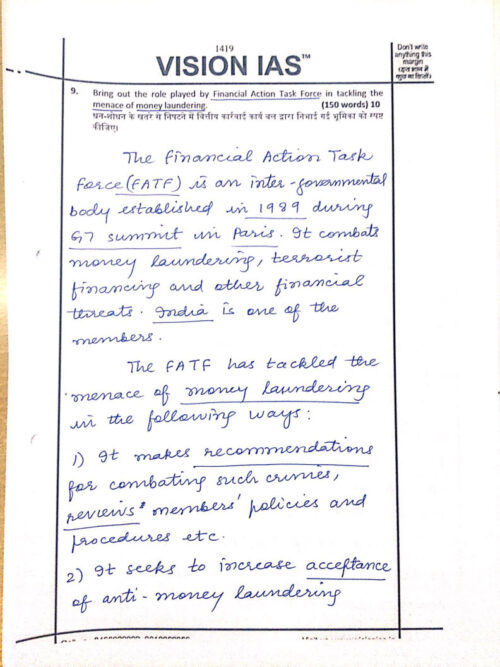 1419
VISION IAS™
Don't write
anything this
margin
9. Bring out the role played by Financial Action Task Force in tackling the
menace of money laundering. (150 words) 10
धन-शोधन के खतरे से निपटने में वित्तीय कार्रवाई कार्य बल द्वारा निभाई गई भूमिका को स्पष्ट
कीजिए।
The Financial Action Task
Force (FATF) is an inter-governmental
body established in 1989 during
G7 summit in Paris. It combats
money laundering, terrorist
financing and other financial
threats. India is one of the
members.
The FATF has tackled the
menace of money laundering
in the following ways:
1) It makes recommendations
for combating such crimes,
reviews members' policies and
procedures etc.
2) It seeks to increase acceptance
of anti-money laundering